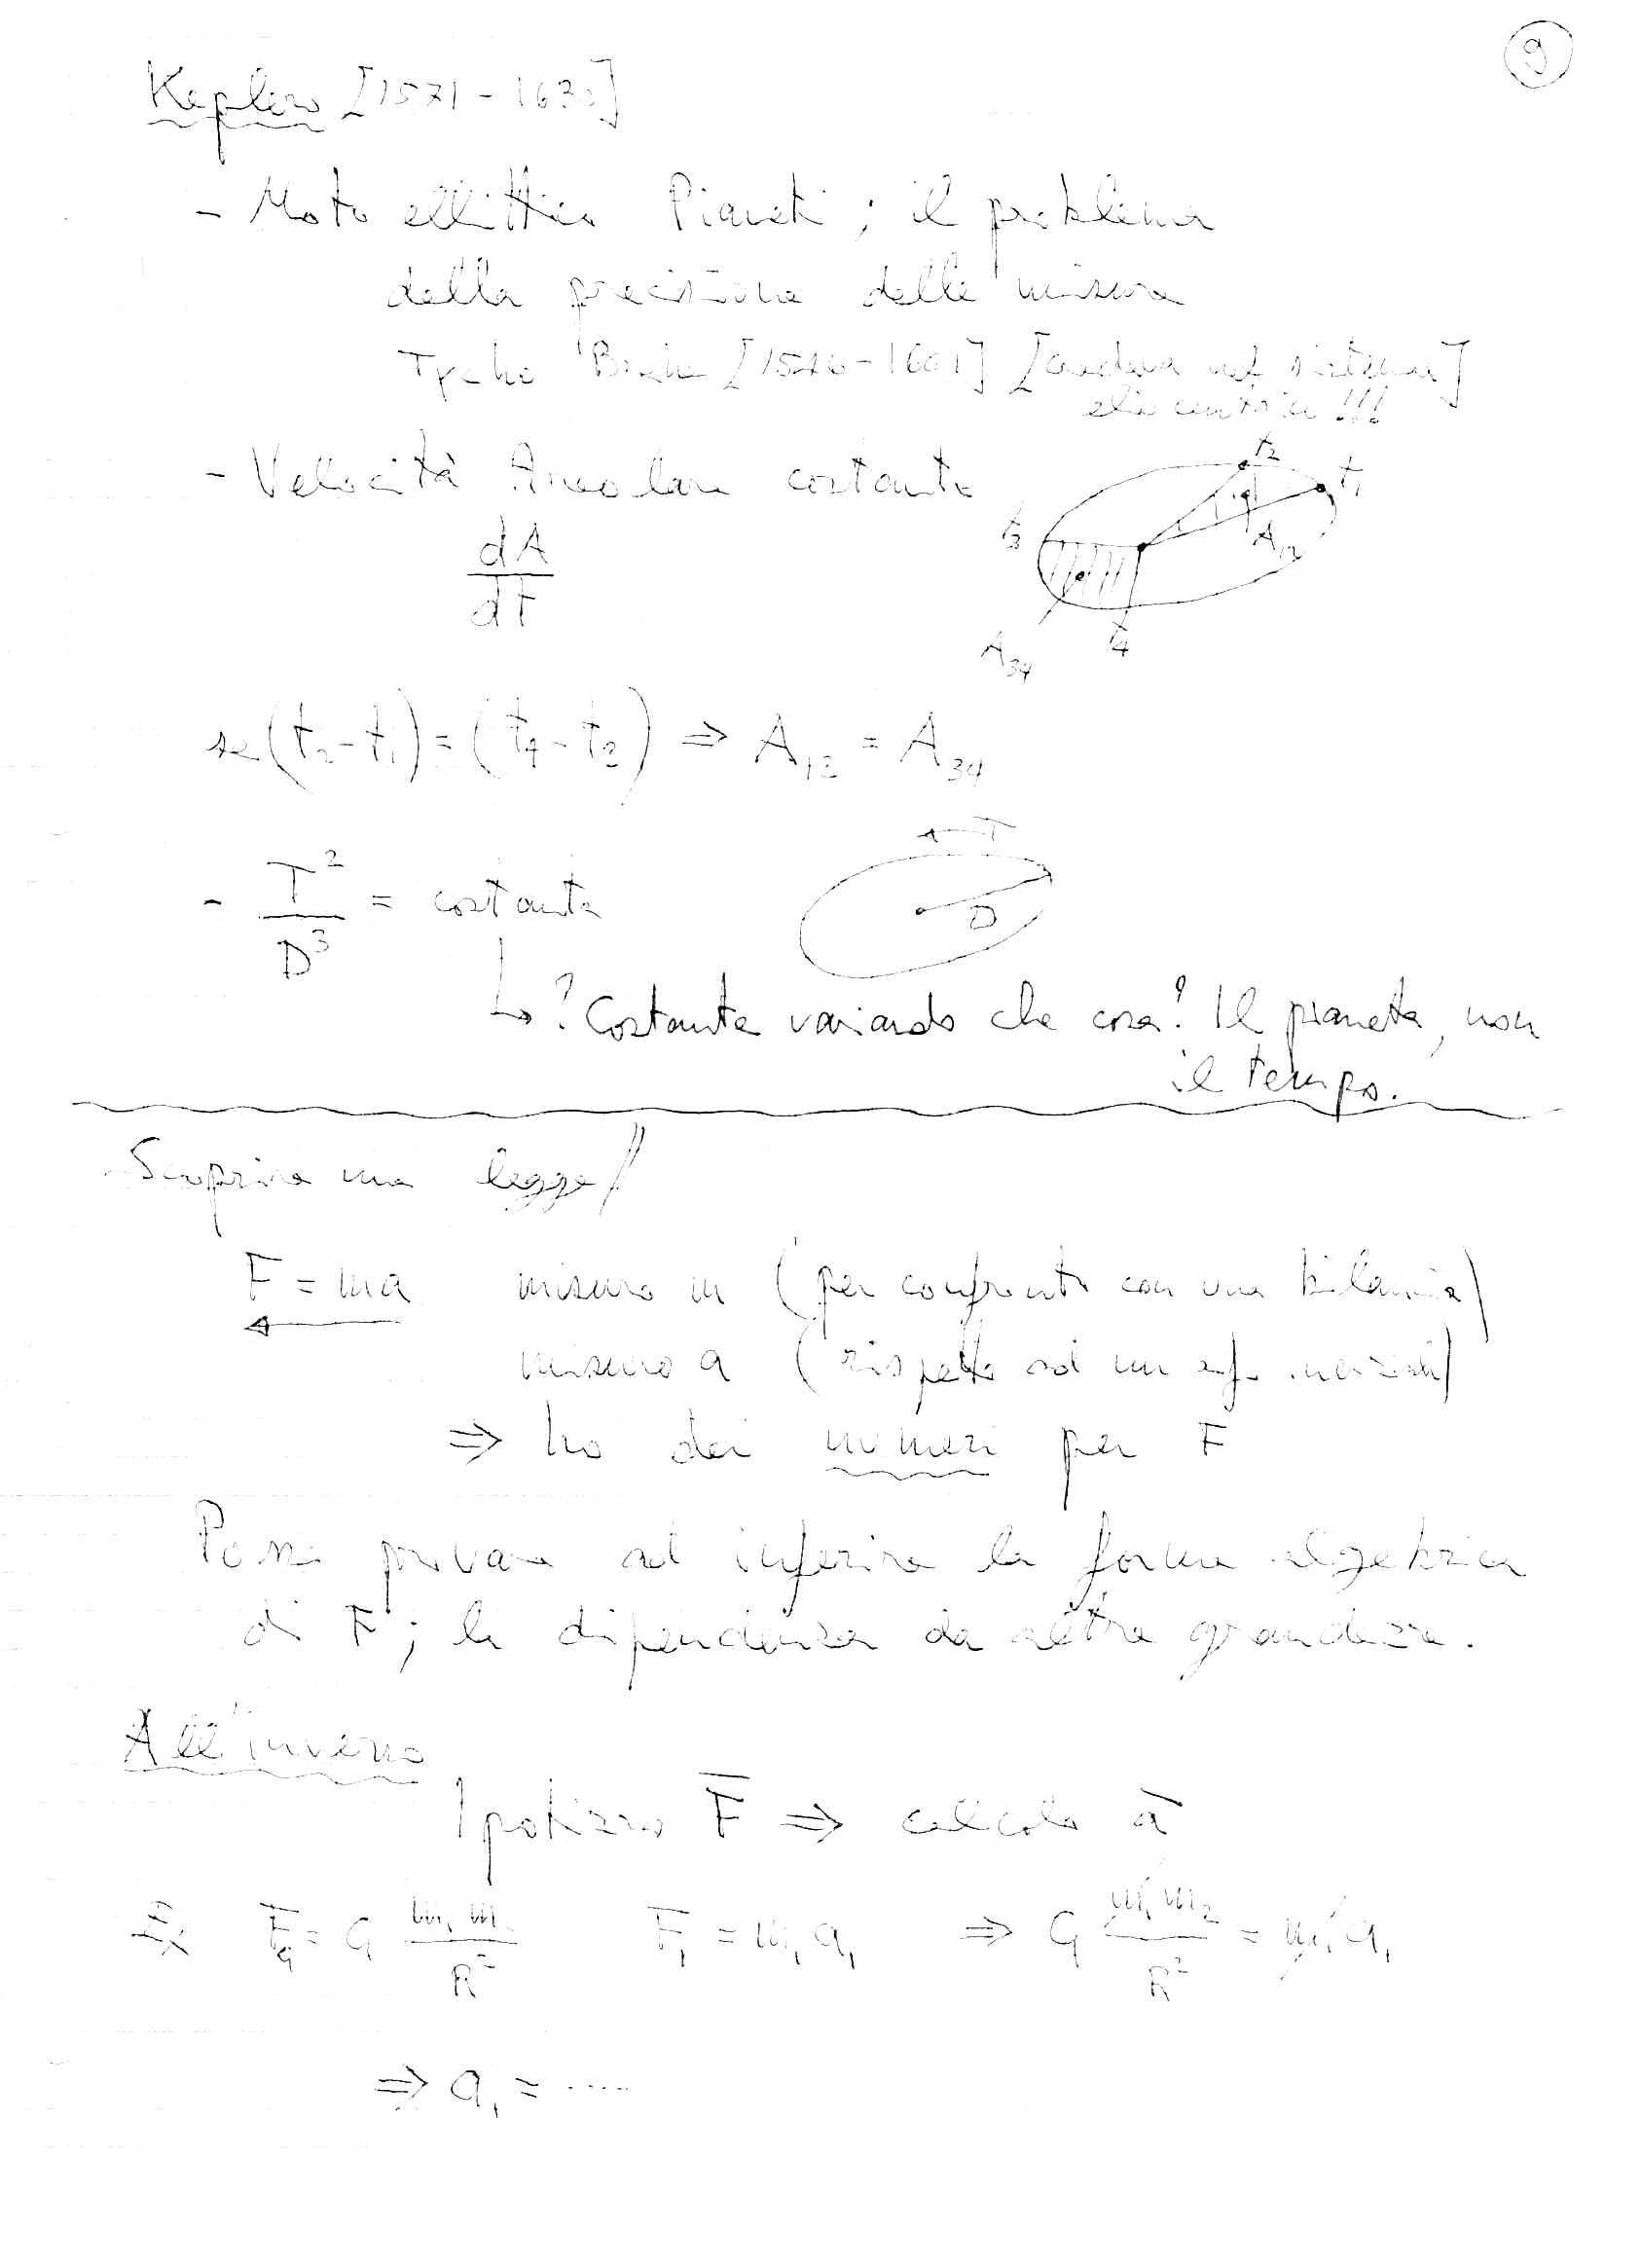 9
Keplero [1571-1630]
- Moto ellittico Pianeti; il problema
della precisione delle misure
Tycho Brahe [1546-1601] [credeva nel sistema]
elio centrico !!!
- Velocità Areolare costante
dA
dt
t2
t1
t3
A12
A34
t4
se (t2-t1) = (t4-t3) ⇒ A12 = A34
T
- T² = costante
D³
D
↳ ? Costante variando che cosa? Il pianeta, non
il tempo.
Scoprire una legge
F = ma misuro m (per confronto con una bilancia)
misuro a (rispetto ad un rif. inerziale)
⇒ ho dei numeri per F
Posso provare ad inferire la forma algebrica
di F; la dipendenza da altre grandezze.
All'inverso
Ipotizzo F̅ ⇒ calcolo a̅
Ex FG = G m1 m2 / R² F1 = m1 a1 ⇒ G m1 m2 / R² = m1 a1
⇒ a1 = ....